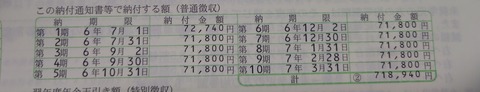 この納付通知書等で納付する額（普通徴収）
納 期 限 納付金額 納 期 限 納付金額
第1期 6年 7月 1日 72,740円 第6期 6年12月 2日 71,800円
第2期 6年 7月31日 71,800円 第7期 6年12月30日 71,800円
第3期 6年 9月 2日 71,800円 第8期 7年 1月31日 71,800円
第4期 6年 9月30日 71,800円 第9期 7年 2月28日 71,800円
第5期 6年10月31日 71,800円 第10期 7年 3月31日 71,800円
計 ② 718,940円